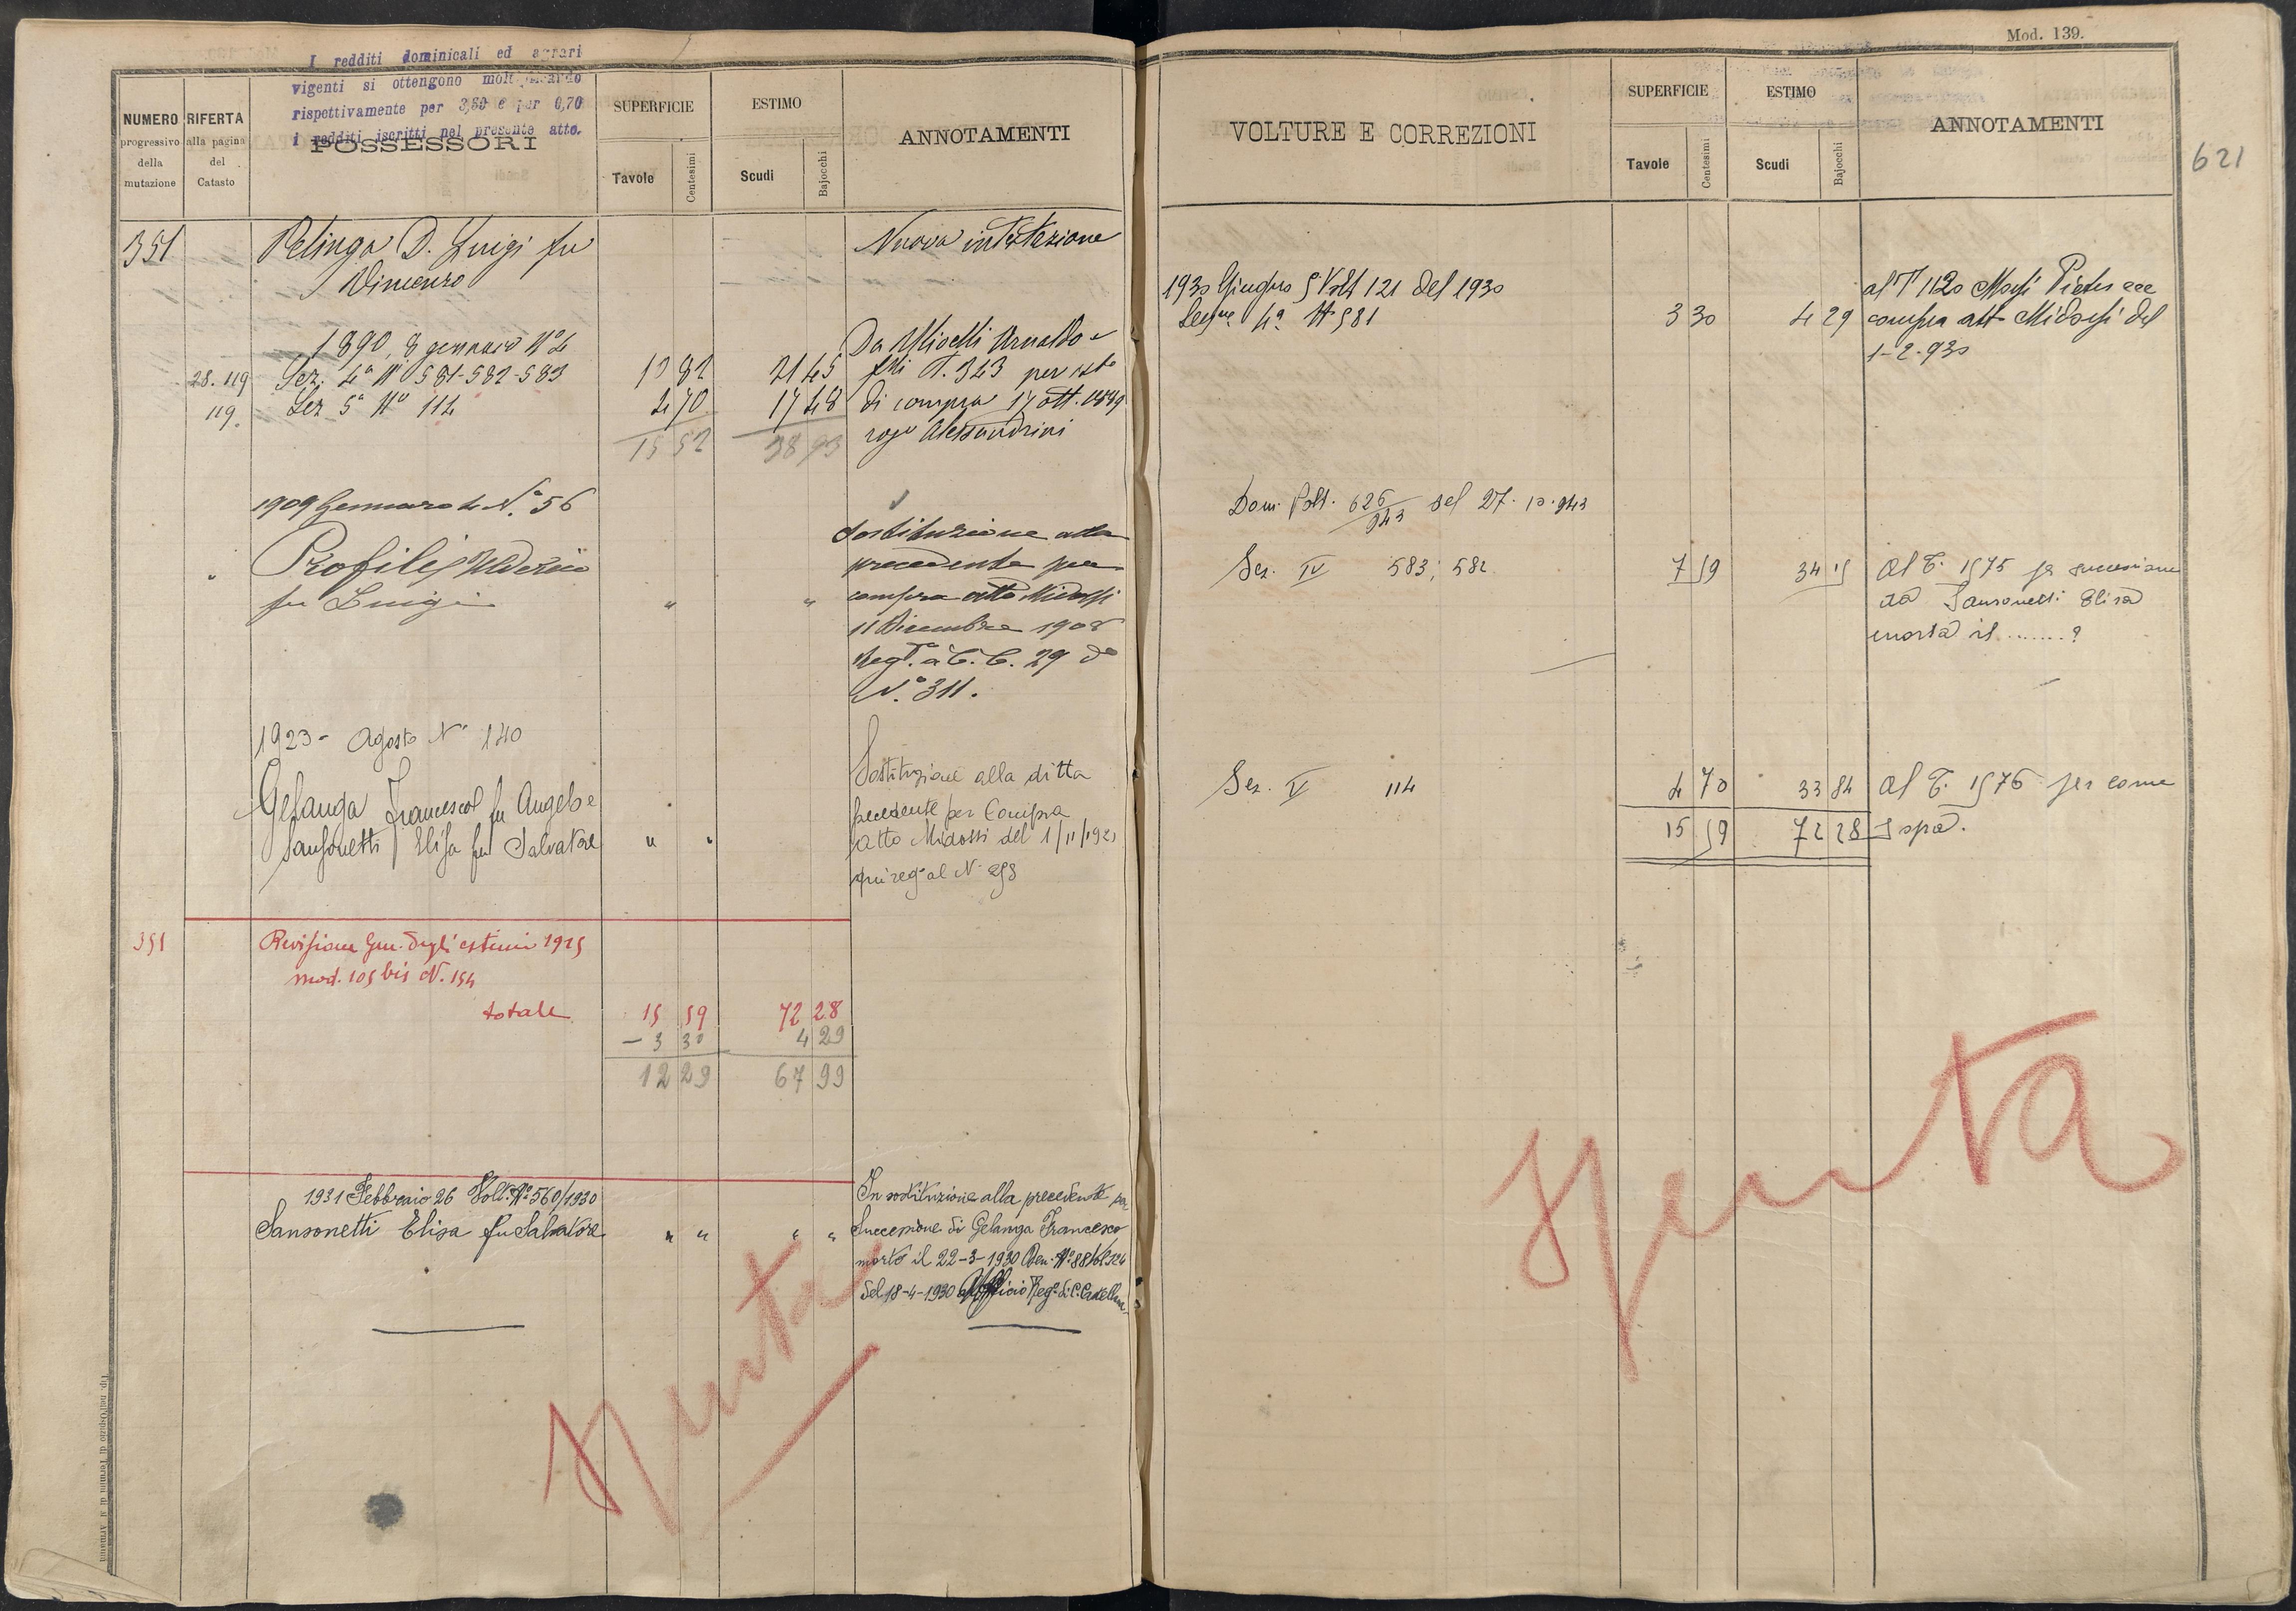 I redditi dominicali ed agrari
vigenti si ottengono moltiplicando
rispettivamente per 3,60 e per 0,70
i redditi iscritti nel presente atto.
NUMERO
progressivo
della
mutazione
RIFERTA
alla pagina
del
Catasto
POSSESSORI
SUPERFICIE
Tavole
Centesimi
ESTIMO
Scudi
Bajocchi
ANNOTAMENTI
351
D. Luigi fu
Vincenzo
Nuova intestazione
1890, 8 gennaio N° 4
28. 119 Sez. 4a N 581-582-583 21 45
119. Sez 5a N° 114 4 70 17 48
15 52 38 93
Da Arnaldo e
T. 343 per
di compra 17 ott. 1889
rogo Alessandrini
1909 Gennaro 4 N.° 56
Profili
fu Luigi " "
Sostituzione alla
precedente per
compra atto Midossi
11 Dicembre 1908
Reg.to a C. C. 29 do
N.° 311.
1923 - Agosto N° 140
Gelanga Francesco fu Angelo e
Sansonetti Elisa fu Salvatore " "
Sostituzione alla ditta
precedente per Compra
atto Midossi del 1/11/1921
351
Revisione Gen. degli estimi 1925
mod. 105 bis N. 154
totale 15 59 72 28
- 3 30 4 29
12 29 67 99
1931 Febbraio 26 Volt. N° 560/1930
Sansonetti Elisa fu Salvatore " " " "
In sostituzione alla precedente per
Successione di Gelanga Francesco
morto il 22-3-1930 Den. N° 88 Vol 324
del 18-4-1930 Ufficio Reg° di C. Castellana
Spenta
Tip. nell'Ospizio di Termini di
Mod. 139.
VOLTURE E CORREZIONI
SUPERFICIE
Tavole
Centesimi
ESTIMO
Scudi
Bajocchi
ANNOTAMENTI
621
1930 Giugno 5 Volt 121 del 1930
Sezne 4a N 581 3 30 4 29
al T 1120 Pietro ecc
compra att Midossi del
1-2-930
Dom. Volt. 626/943 del 27. 10. 943
Sez. IV 583; 582 7 59 34 15
Al T. 1575 per successione
da Sansonetti Elisa
morta il ....... ?
Sez. V 114 4 70 33 84 Al T. 1576 per come
15 59 72 28 sopra.
Spenta